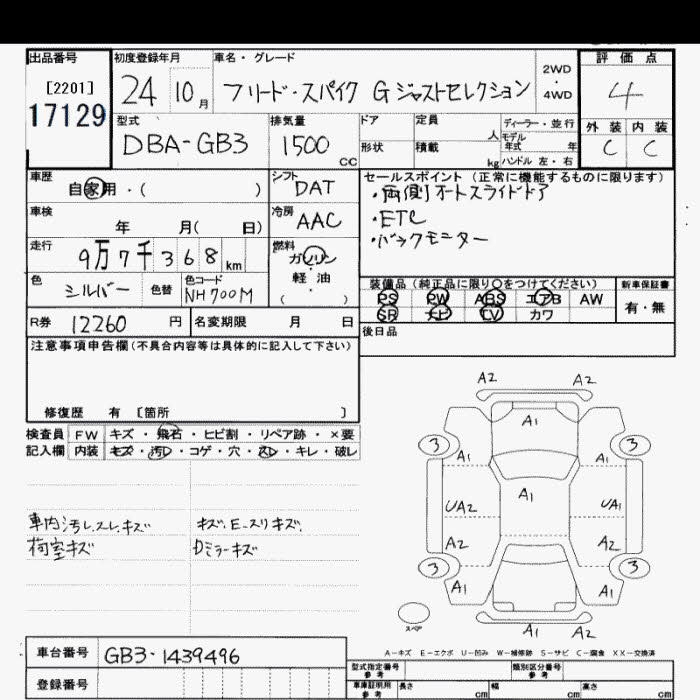 出品番号 初度登録年月 車名・グレード 評価点
[2201] 24 10月 フリード・スパイク G ジャストセレクション 2WD・4WD 4
17129 型式 排気量 ドア 定員 人 ディーラー・並行 外装 内装
DBA-GB3 1500 CC 形状 積載 kg モデル年式 年 ハンドル 左・右 C C
車歴 自家用・( ) シフト DAT セールスポイント(正常に機能するものに限ります)
・両側オートスライドドア
車検 年 月( 日) 冷房 AAC ・ETC
・バックモニター
走行 9万7千368km 燃料 ガソリン・軽油・( )
色 シルバー 色替 色コード NH700M 装備品(純正品に限り○をつけてください) 新車保証書
PS PW ABS エアB AW 有・無
SR ナビ TV カワ
R券 12260円 名変期限 月 日 後日品
注意事項申告欄(不具合内容等は具体的に記入して下さい)
修復歴 有 [箇所 ]
検査員 FW キズ・飛石・ヒビ割・リペア跡・×要
記入欄 内装 キズ・汚レ・コゲ・穴・スレ・キレ・破レ
車内汚レ.スレ.キズ キズ.E-スリキズ.
荷室キズ Dミラーキズ
A2 A2
A1
3 3
A1 A1
A1
UA2 UA1
A2 A2
3 3
A1 A1
A1 A2
スペア
A-キズ E-エクボ U-凹み W-補修跡 S-サビ C-腐食 XX-交換済
車台番号 GB3-1439496
型式指定番号 参考 類別区分番号 参考
登録番号 車庫証明用 参考 長さ cm 幅 cm 高さ cm